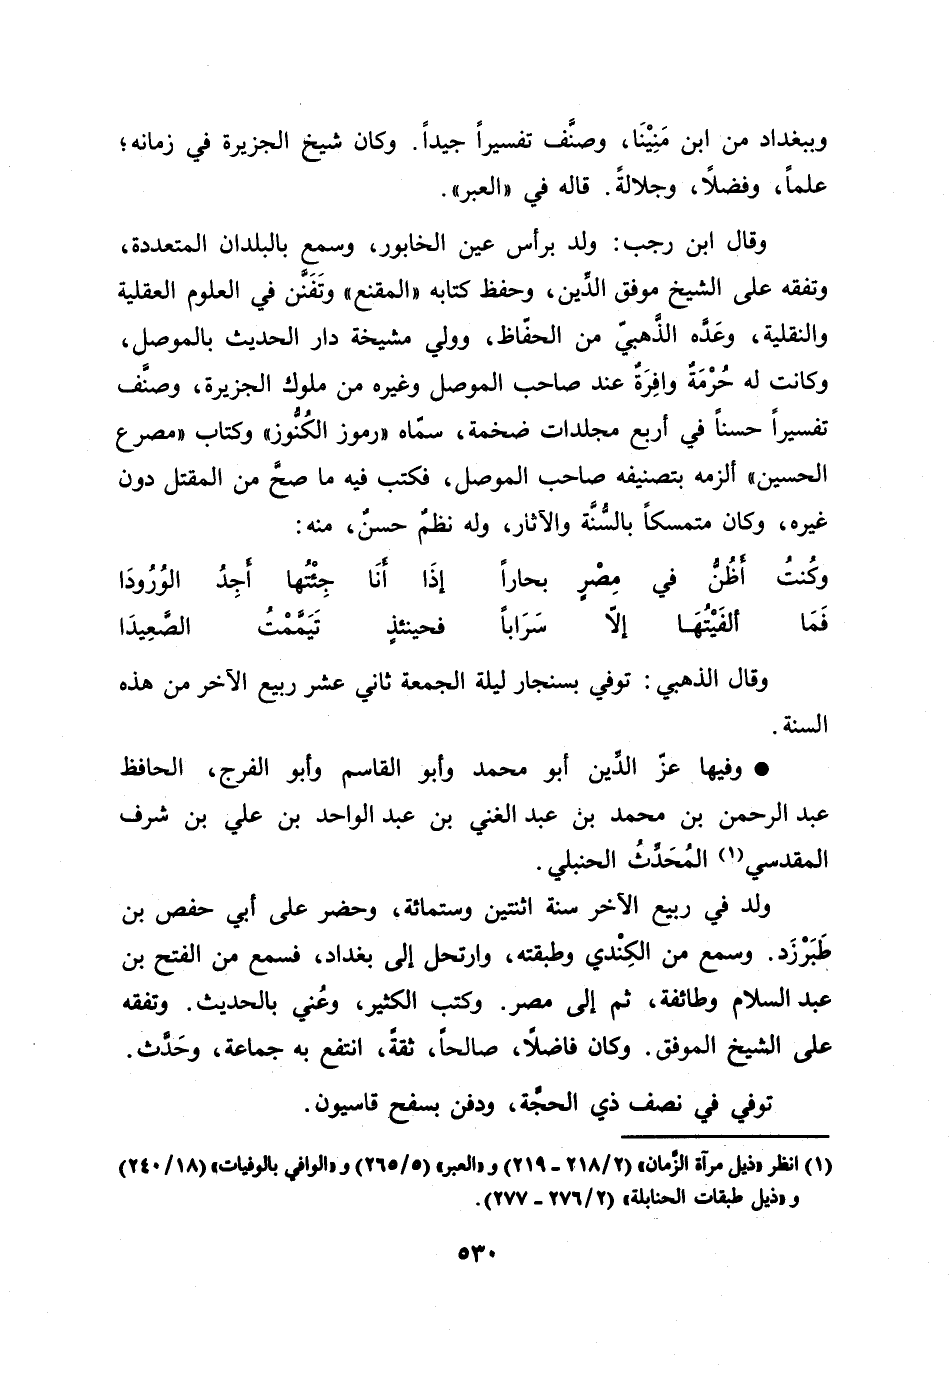 وببغداد من ابن مَنِيْنَا، وصنَّف تفسيراً جيداً. وكان شيخ الجزيرة في زمانه؛
علماً، وفضلًا، وجلالةً. قاله في «العبر».
وقال ابن رجب: ولد برأس عين الخابور، وسمع بالبلدان المتعددة،
وتفقه على الشيخ موفق الدِّين، وحفظ كتابه «المقنع» وتَفَنَّن في العلوم العقلية
والنقلية، وعَدَّه الذَّهبيّ من الحفّاظ، وولي مشيخة دار الحديث بالموصل،
وكانت له حُرْمَةٌ وافِرَةٌ عند صاحب الموصل وغيره من ملوك الجزيرة، وصنَّف
تفسيراً حسناً في أربع مجلدات ضخمة، سمّاه «رموز الكُنُوز» وكتاب «مصرع
الحسين» ألزمه بتصنيفه صاحب الموصل، فكتب فيه ما صحَّ من المقتل دون
غيره، وكان متمسكاً بالسُّنَّة والآثار، وله نظمٌ حسنٌ، منه:
وكُنتُ أَظُنُّ في مِصْرٍ بحاراً إذَا أَنَا جِئْتُها أَجِدُ الوُرُودَا
فَمَا ألفَيْتُهَا إلّا سَرَاباً فحينئذٍ تَيَمَّمْتُ الصَّعِيدَا
وقال الذهبي: توفي بسنجار ليلة الجمعة ثاني عشر ربيع الآخر من هذه
السنة.
● وفيها عزّ الدِّين أبو محمد وأبو القاسم وأبو الفرج، الحافظ
عبد الرحمن بن محمد بن عبد الغني بن عبد الواحد بن علي بن شرف
المقدسي(١) المُحَدِّثُ الحنبلي.
ولد في ربيع الآخر سنة اثنتين وستمائة، وحضر على أبي حفص بن
طَبَرْزَد. وسمع من الكِنْدي وطبقته، وارتحل إلى بغداد، فسمع من الفتح بن
عبد السلام وطائفة، ثم إلى مصر. وكتب الكثير، وعُني بالحديث. وتفقه
على الشيخ الموفق. وكان فاضلًا، صالحاً، ثقةً، انتفع به جماعة، وحَدَّث.
توفي في نصف ذي الحجَّة، ودفن بسفح قاسيون.
(١) انظر «ذيل مرآة الزَّمان» (٢/ ٢١٨ ـ ٢١٩) و «العبر» (٥/ ٢٦٥) و «الوافي بالوفيات» (١٨/ ٢٤٠)
و «ذيل طبقات الحنابلة» (٢/ ٢٧٦ ـ ٢٧٧).
٥٣٠